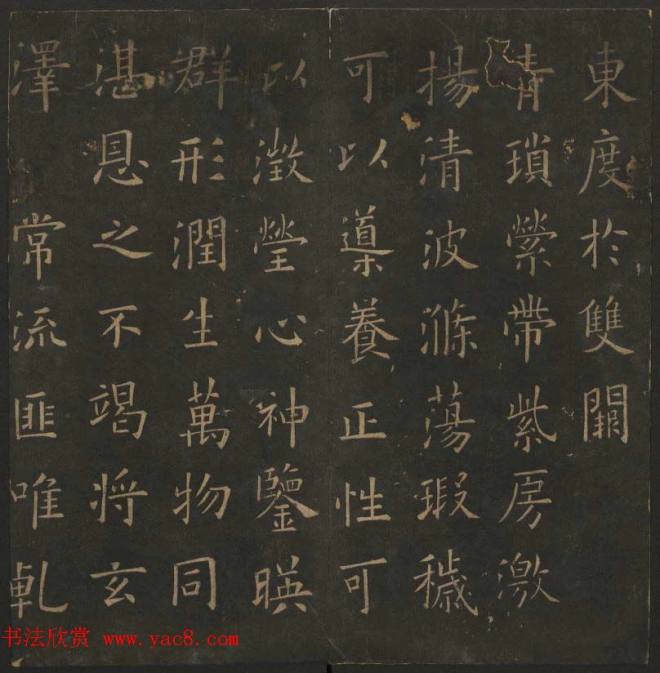 東度於雙闕
青瑣縈帶紫房激
揚清波滌蕩瑕穢
可以導養正性可
以澂瑩心神鑒暎
群形潤生萬物同
湛恩之不竭將玄
澤常流匪唯乹
书法欣赏 www.yac8.com